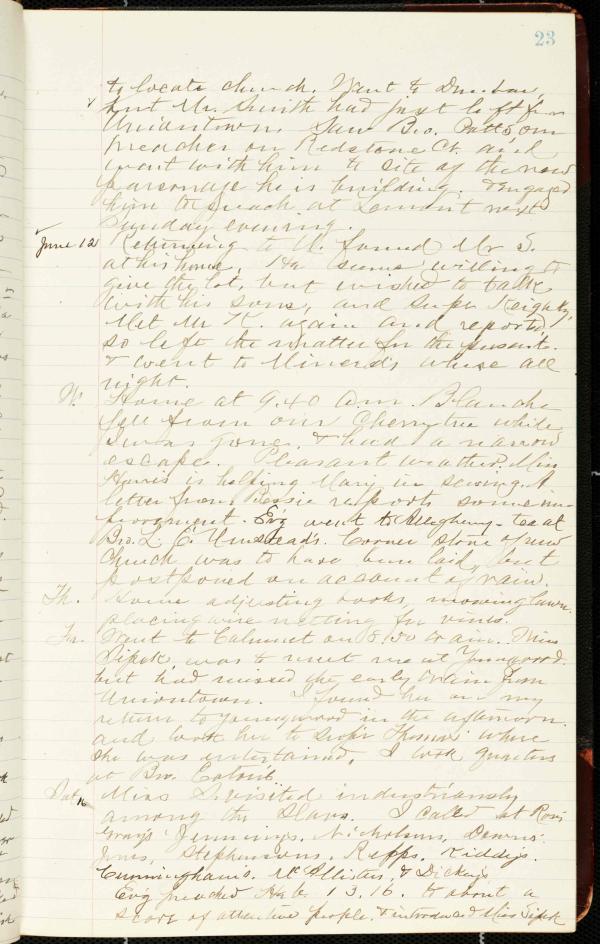 23
to locate church. Went to Dunbar,
but Mr. Smith had just left for
Uniontown. Saw Bro. Potts, our
preacher on Redstone Ct. and
went with him to site of the new
parsonage he is building. Engaged
him to preach at Lemont next
Sunday evening.
June 12 Returning to U. found Mr S.
at his house. He seems willing to
give the lot, but wished to talk
with his sons, and Supr.
Met Mr K. again and reported,
so left the matter for the present.
& went to Minerd's where all
night.
W. Home at 9.40 a.m. Blanche
fell from our Cherry tree while
I was gone, & had a narrow
escape. Pleasant weather. Miss
Harris is helping Mary in sewing. A
letter from Bessie reports some im-
provement. Ev'g went to Allegheny - tea at
Bro. L. C. Corner stone of new
Church was to have been laid, but
postponed on account of rain.
Th. Some adjusting books, mowing lawn,
placing wire netting for vines.
Fri. Went to Calumet on 8.50 train. Miss
Sipek was to meet me at Youngwood.
but had missed the early train from
Uniontown. I found her on my
return to Youngwood in the afternoon.
and took her to Supr Thomas' where
she was entertained, I took quarters
at Bro.
Sat. 16 Miss S. visited industriously
among the Slavs. I called at
Gray's Jennings, Nicholsons, Downs'
Jones, Stephensons, Rapps, Kiddys.
Cunninghams. McAllisters, & Dickeys
Ev'g preached Heb. 13.16. to about a
score of attentive people, & introduced Miss Sipek